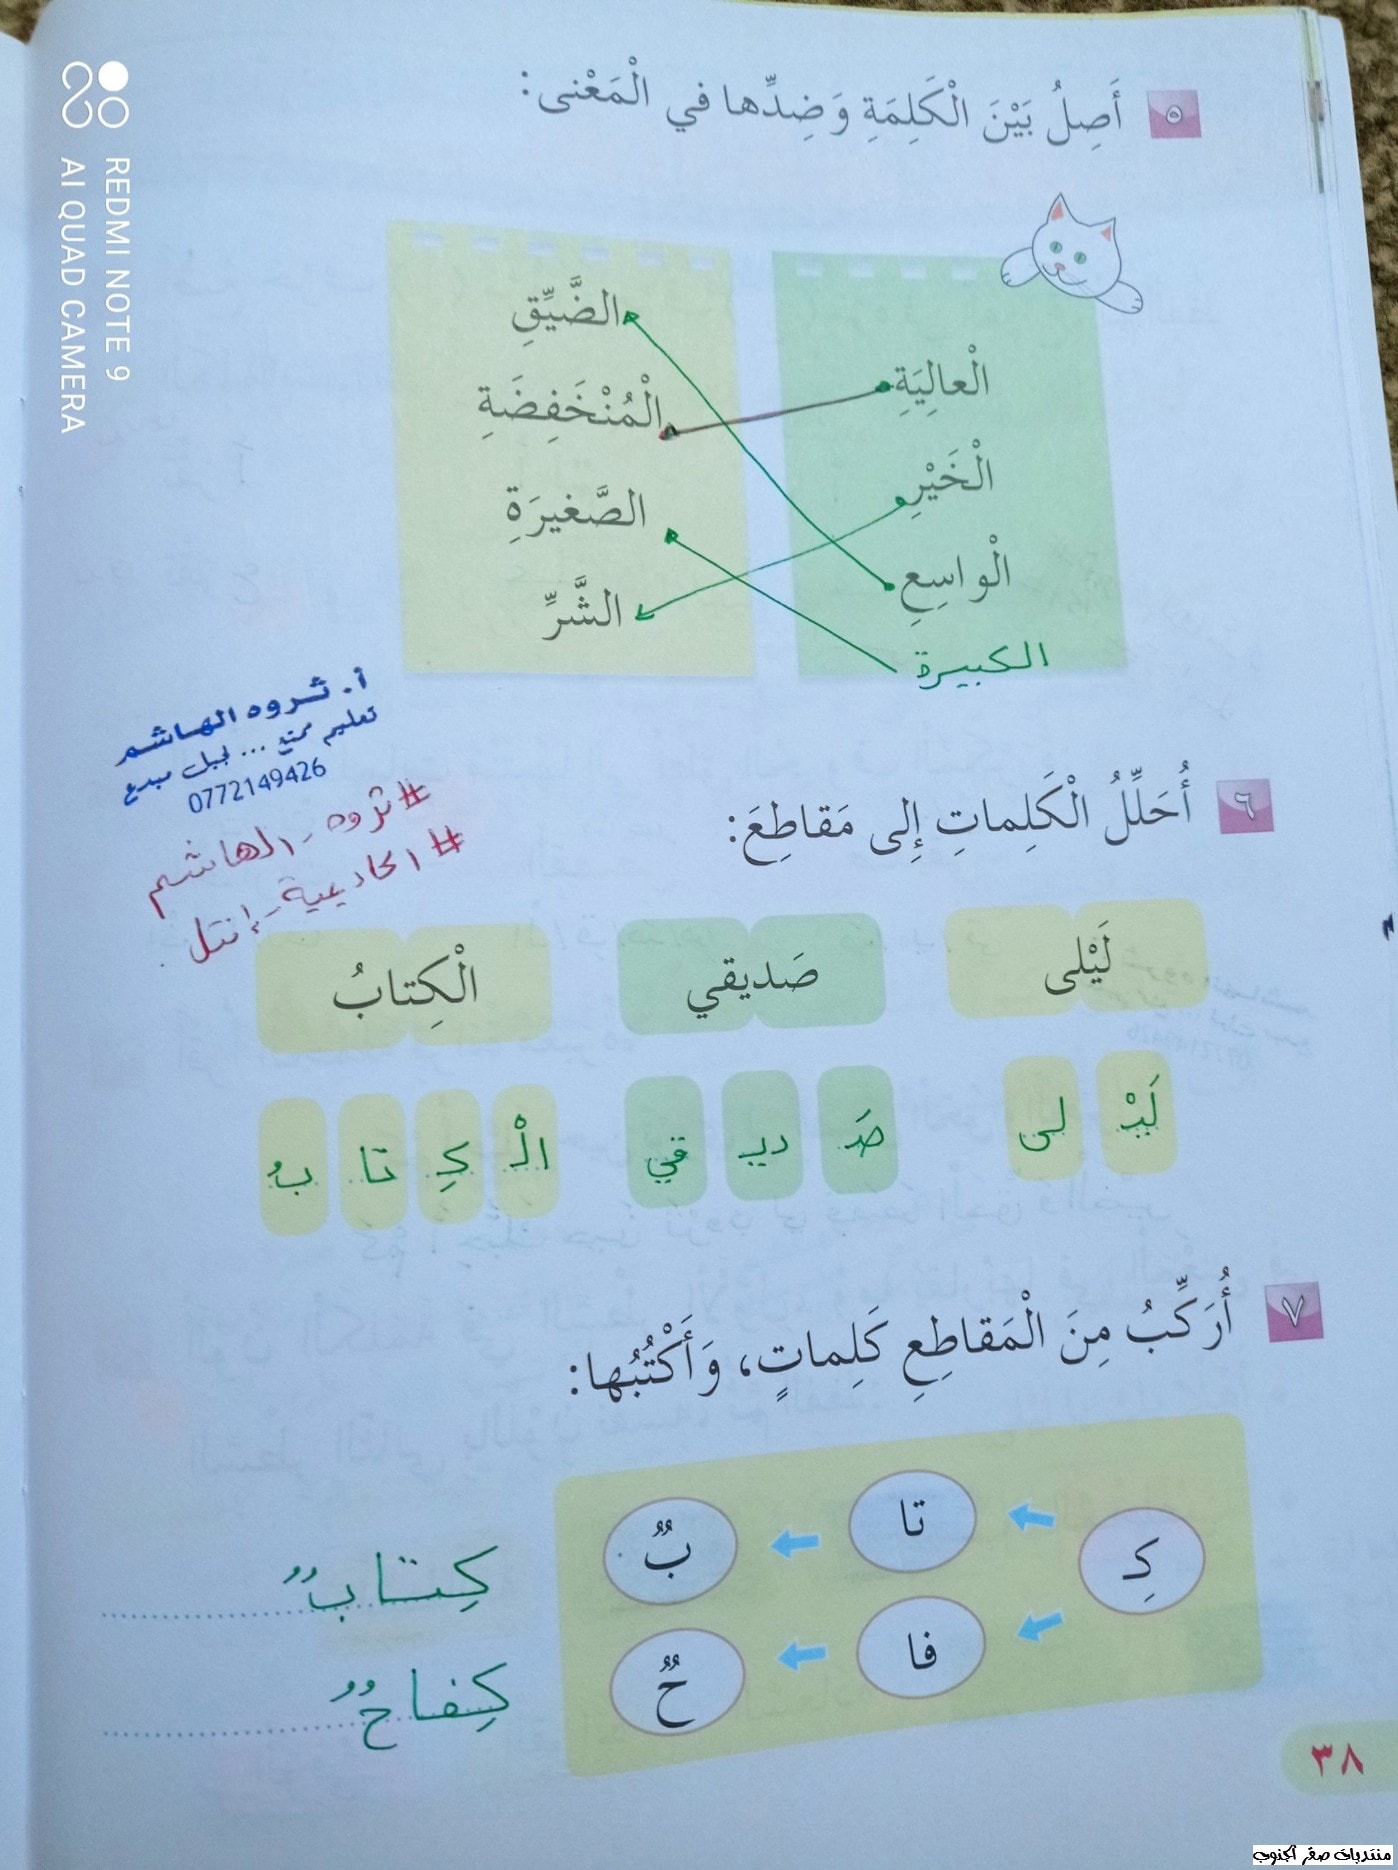 ٥ أَصِلُ بَيْنَ الْكَلِمَةِ وَضِدِّها في الْمَعْنى:
الْعالِيَةِ
الْخَيْرِ
الْواسِعِ
الكبيرة
الضَّيِّقِ
الْمُنْخَفِضَةِ
الصَّغيرَةِ
الشَّرِّ
أ. ثروه الهاشم
تعليم ممتع ... لجيل مبدع
0772149426
#ثروه_الهاشم
#اكاديمية_إنتل
٦ أُحَلِّلُ الْكَلِماتِ إِلى مَقاطِعَ:
لَيْلى صَديقي الْكِتابُ
لَيْـ لى صَـ ديـ قي الْـ كِـ تا بُ
٧ أُرَكِّبُ مِنَ الْمَقاطِعِ كَلِماتٍ، وَأَكْتُبُها:
كِـ تا بٌ كِتابٌ
فا حٌ كِفاحٌ
٣٨
REDMI NOTE 9
AI QUAD CAMERA
منتديات صقر الجنوب